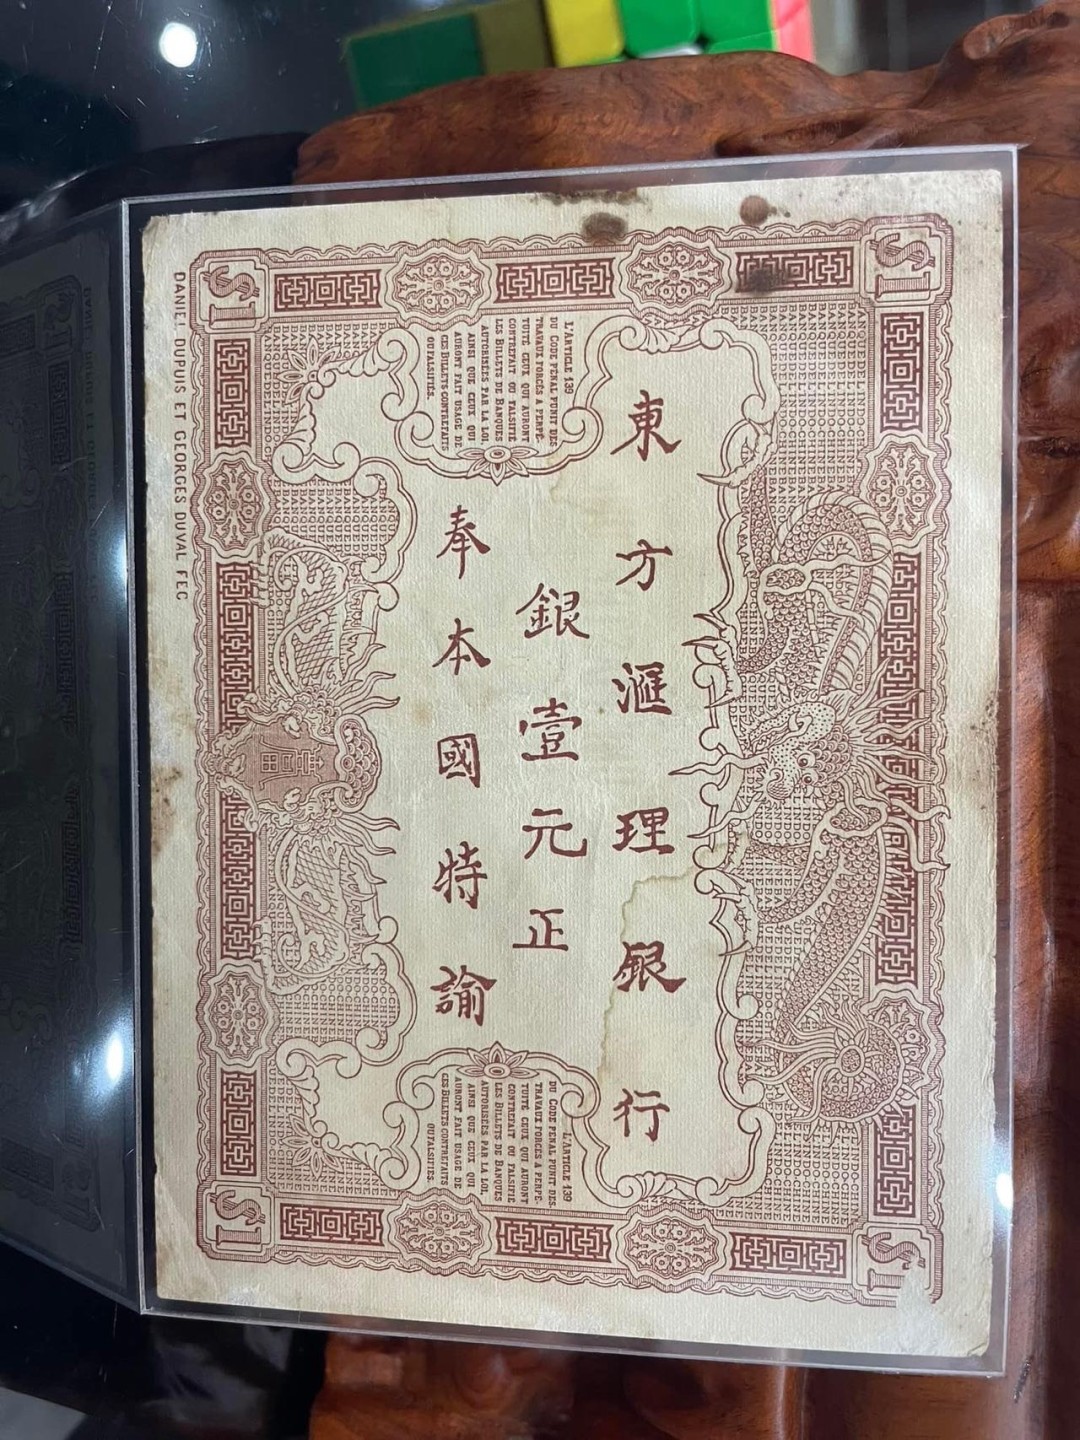 $1
$1
東方滙理銀行
銀壹元正
奉本國特諭
L'ARTICLE 139
DU CODE PENAL PUNIT DES
TRAVAUX FORCÉS A PERPÉ-
TUITÉ CEUX QUI AURONT
CONTREFAIT OU FALSIFIÉ
LES BILLETS DE BANQUES
AUTORISÉES PAR LA LOI,
AINSI QUE CEUX QUI
AURONT FAIT USAGE DE
CES BILLETS CONTREFAITS
OU FALSIFIÉS.
L'ARTICLE 139
DU CODE PENAL PUNIT DES
TRAVAUX FORCÉS A PERPÉ-
TUITÉ CEUX QUI AURONT
CONTREFAIT OU FALSIFIÉ
LES BILLETS DE BANQUES
AUTORISÉES PAR LA LOI,
AINSI QUE CEUX QUI
AURONT FAIT USAGE DE
CES BILLETS CONTREFAITS
OU FALSIFIÉS.
$1
$1
DANIEL DUPUIS ET GEORGES DUVAL FEC